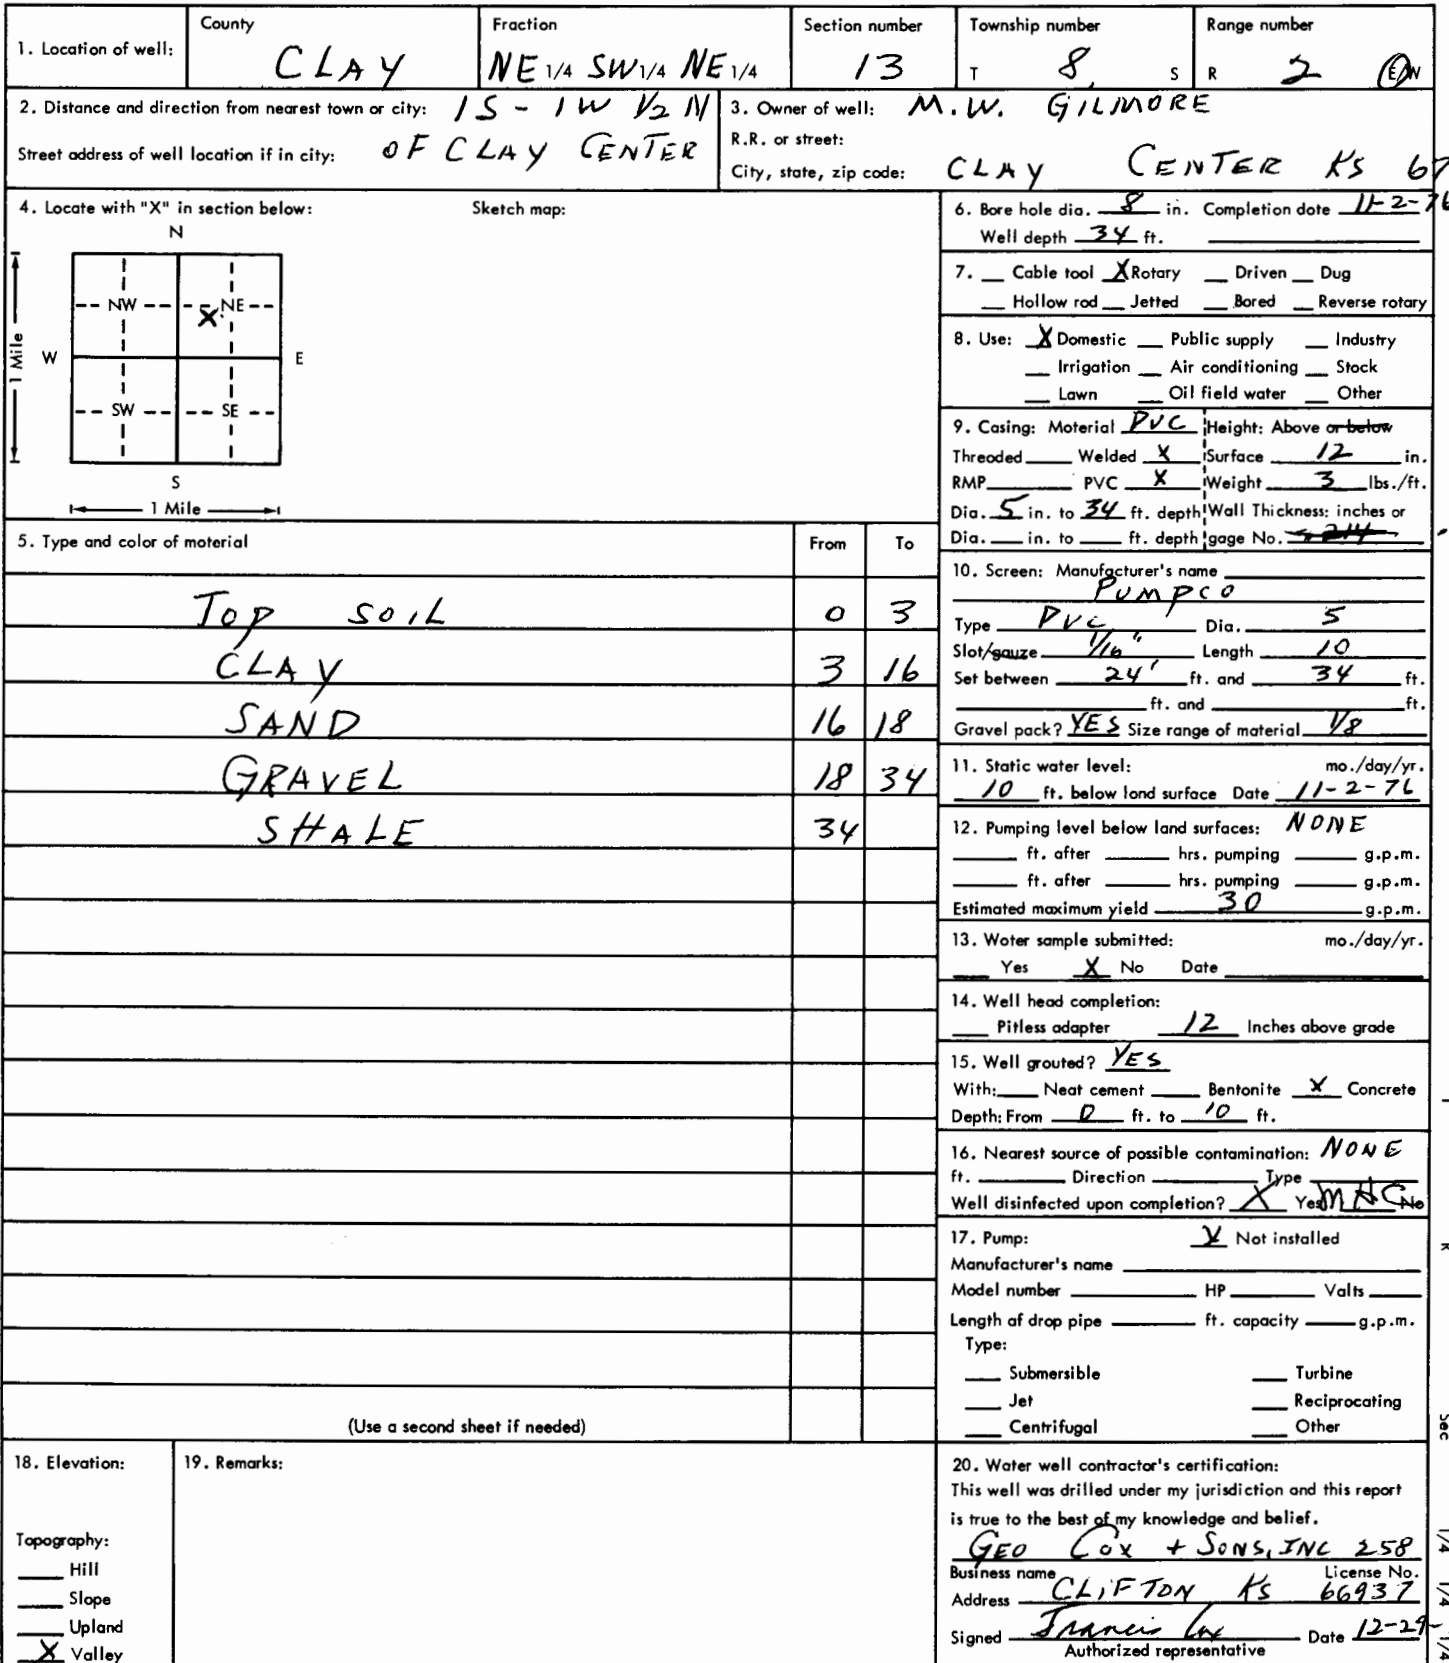 1. Location of well: County CLAY Fraction NE 1/4 SW 1/4 NE 1/4 Section number 13 Township number T 8 S Range number R 2 E W
2. Distance and direction from nearest town or city: 1S - 1W 1/2 N
OF CLAY CENTER
Street address of well location if in city:
3. Owner of well: M.W. GILMORE
R.R. or street:
City, state, zip code: CLAY CENTER KS 67
4. Locate with "X" in section below: Sketch map:
N
NW NE
X
W E
1 Mile
SW SE
S
1 Mile
5. Type and color of material From To
TOP SOIL 0 3
CLAY 3 16
SAND 16 18
GRAVEL 18 34
SHALE 34
(Use a second sheet if needed)
6. Bore hole dia. 8 in. Completion date 11-2-76
Well depth 34 ft.
7. Cable tool X Rotary Driven Dug
Hollow rod Jetted Bored Reverse rotary
8. Use: X Domestic Public supply Industry
Irrigation Air conditioning Stock
Lawn Oil field water Other
9. Casing: Material PVC Height: Above or below
Threaded Welded X Surface 12 in.
RMP PVC X Weight 3 lbs./ft.
Dia. 5 in. to 34 ft. depth Wall Thickness: inches or
Dia. in. to ft. depth gage No. .214
10. Screen: Manufacturer's name
PUMPCO
Type PVC Dia. 5
Slot/gauze 1/16" Length 10
Set between 24' ft. and 34 ft.
ft. and ft.
Gravel pack? YES Size range of material 1/8
11. Static water level: mo./day/yr.
10 ft. below land surface Date 11-2-76
12. Pumping level below land surfaces: NONE
ft. after hrs. pumping g.p.m.
ft. after hrs. pumping g.p.m.
Estimated maximum yield 30 g.p.m.
13. Water sample submitted: mo./day/yr.
Yes X No Date
14. Well head completion:
Pitless adapter 12 Inches above grade
15. Well grouted? YES
With: Neat cement Bentonite X Concrete
Depth: From 0 ft. to 10 ft.
16. Nearest source of possible contamination: NONE
ft. Direction Type
Well disinfected upon completion? X Yes No
17. Pump: X Not installed
Manufacturer's name
Model number HP Volts
Length of drop pipe ft. capacity g.p.m.
Type:
Submersible Turbine
Jet Reciprocating
Centrifugal Other
18. Elevation:
Topography:
Hill
Slope
Upland
X Valley
19. Remarks:
20. Water well contractor's certification:
This well was drilled under my jurisdiction and this report
is true to the best of my knowledge and belief.
GEO COX + SONS, INC 258
Business name License No.
Address CLIFTON KS 66937
Signed Francis Cox Date 12-29-
Authorized representative
Sec
1/4 1/4 1/4